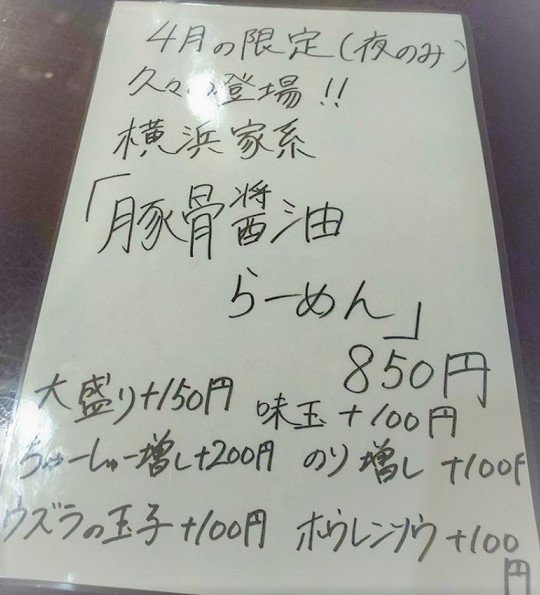 4月の限定(夜のみ)
久々の登場!!
横浜家系
「豚骨醤油
らーめん」
850円
大盛り+150円 味玉+100円
ちゅーしゅー増し+200円 のり増し +100円
ウズラの玉子+100円 ホウレンソウ+100円